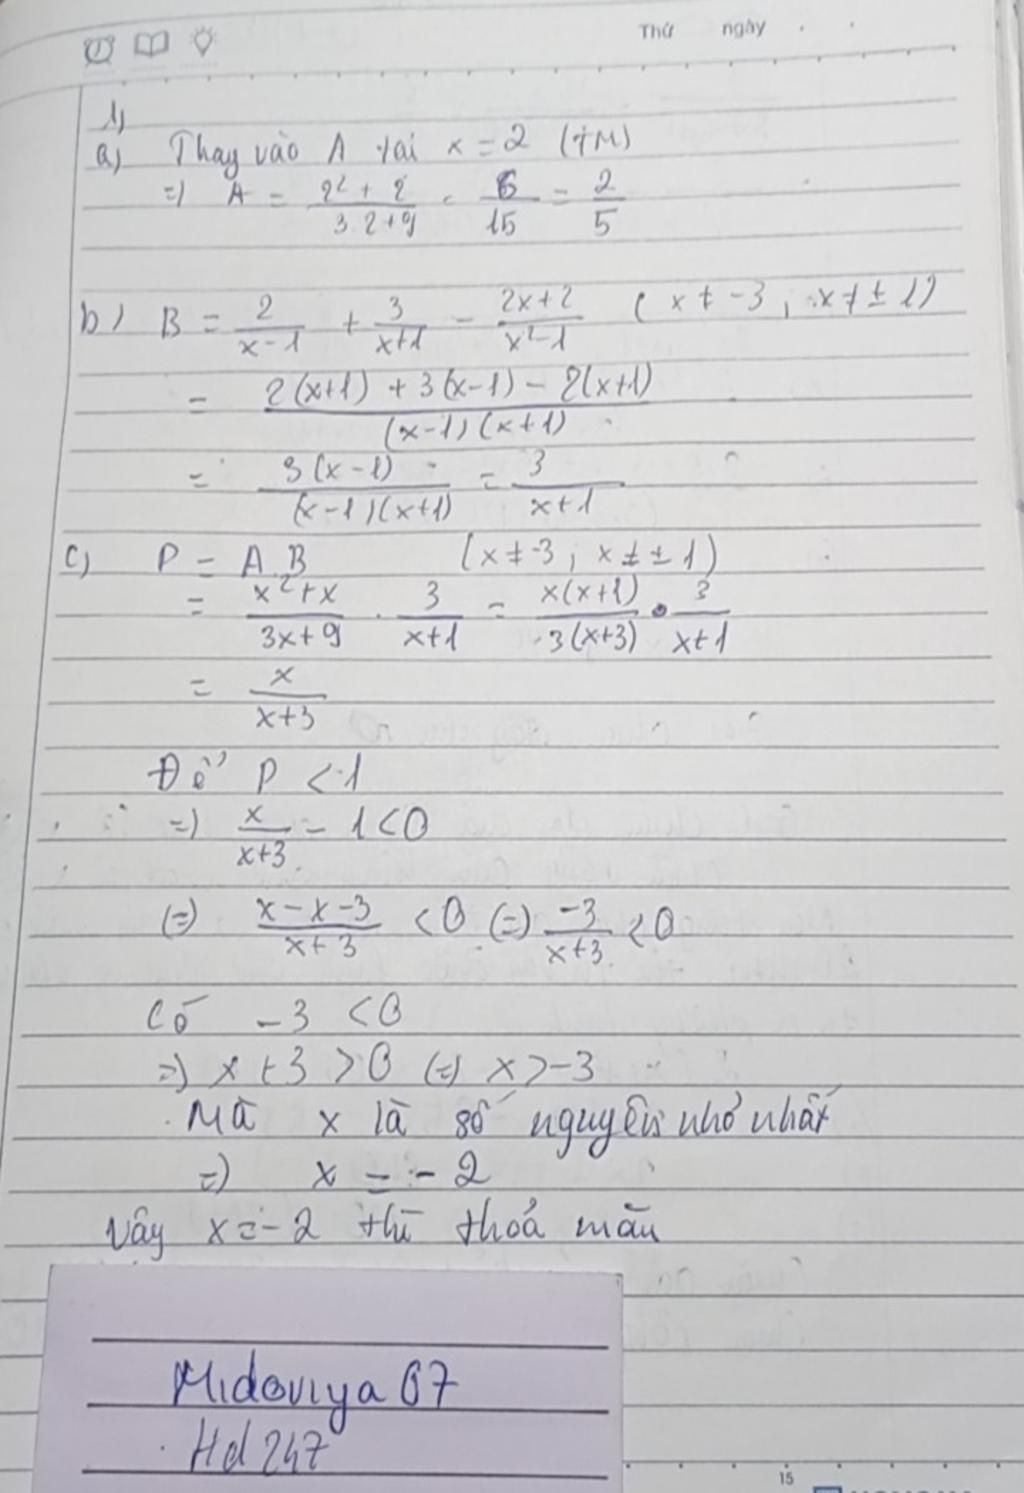 Thứ ngày
1)
a) Thay vào A tại x = 2 (TM)
=) A = (2² + 2)/(3.2+9) = 6/15 = 2/5
b) B = 2/(x-1) + 3/(x+1) - (2x+2)/(x²-1) ( x ≠ -3 ; x ≠ ± 1)
= (2(x+1) + 3(x-1) - 2(x+1))/((x-1)(x+1))
= 3(x-1)/((x-1)(x+1)) = 3/(x+1)
c) P = A.B (x ≠ -3 ; x ≠ ± 1)
= (x²+x)/(3x+9) . 3/(x+1) = x(x+1)/(3(x+3)) . 3/(x+1)
= x/(x+3)
Để P < 1
=) x/(x+3) - 1 < 0
(=) (x-x-3)/(x+3) < 0 (=) -3/(x+3) < 0
Có -3 < 0
=) x + 3 > 0 (=) x > -3
Mà x là số nguyên nhỏ nhất
=) x = -2
Vậy x = -2 thì thoả mãn
Midoviya 07
Hd 247
15